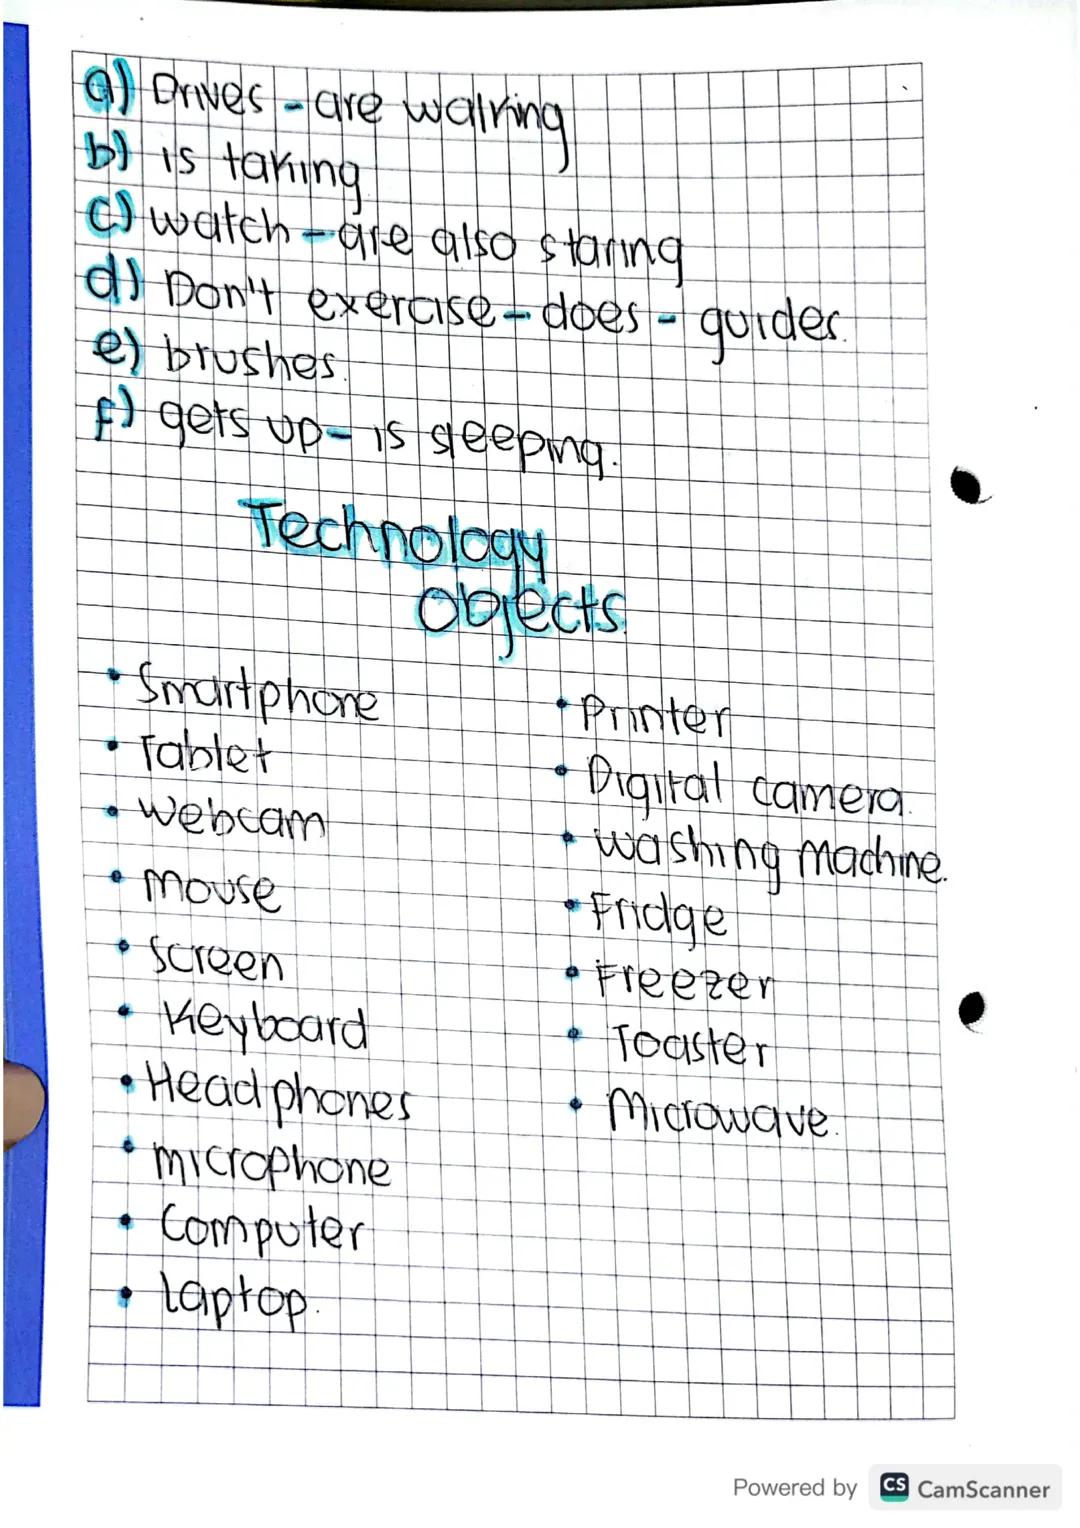 a) Drives - are walking
b) is taking
c) watch - are also staring
d) Don't exercise - does - guides.
e) brushes.
f) gets up - is sleeping.
Technology
Objects.
• Smartphone
• Tablet
• Webcam
• Mouse
• Screen
• Keyboard
• Headphones
• microphone
• Computer
• Laptop.
• Printer
• Digital camera.
• Washing Machine.
• Fridge
• Freezer
• Toaster
• Microwave.
Powered by CS CamScanner